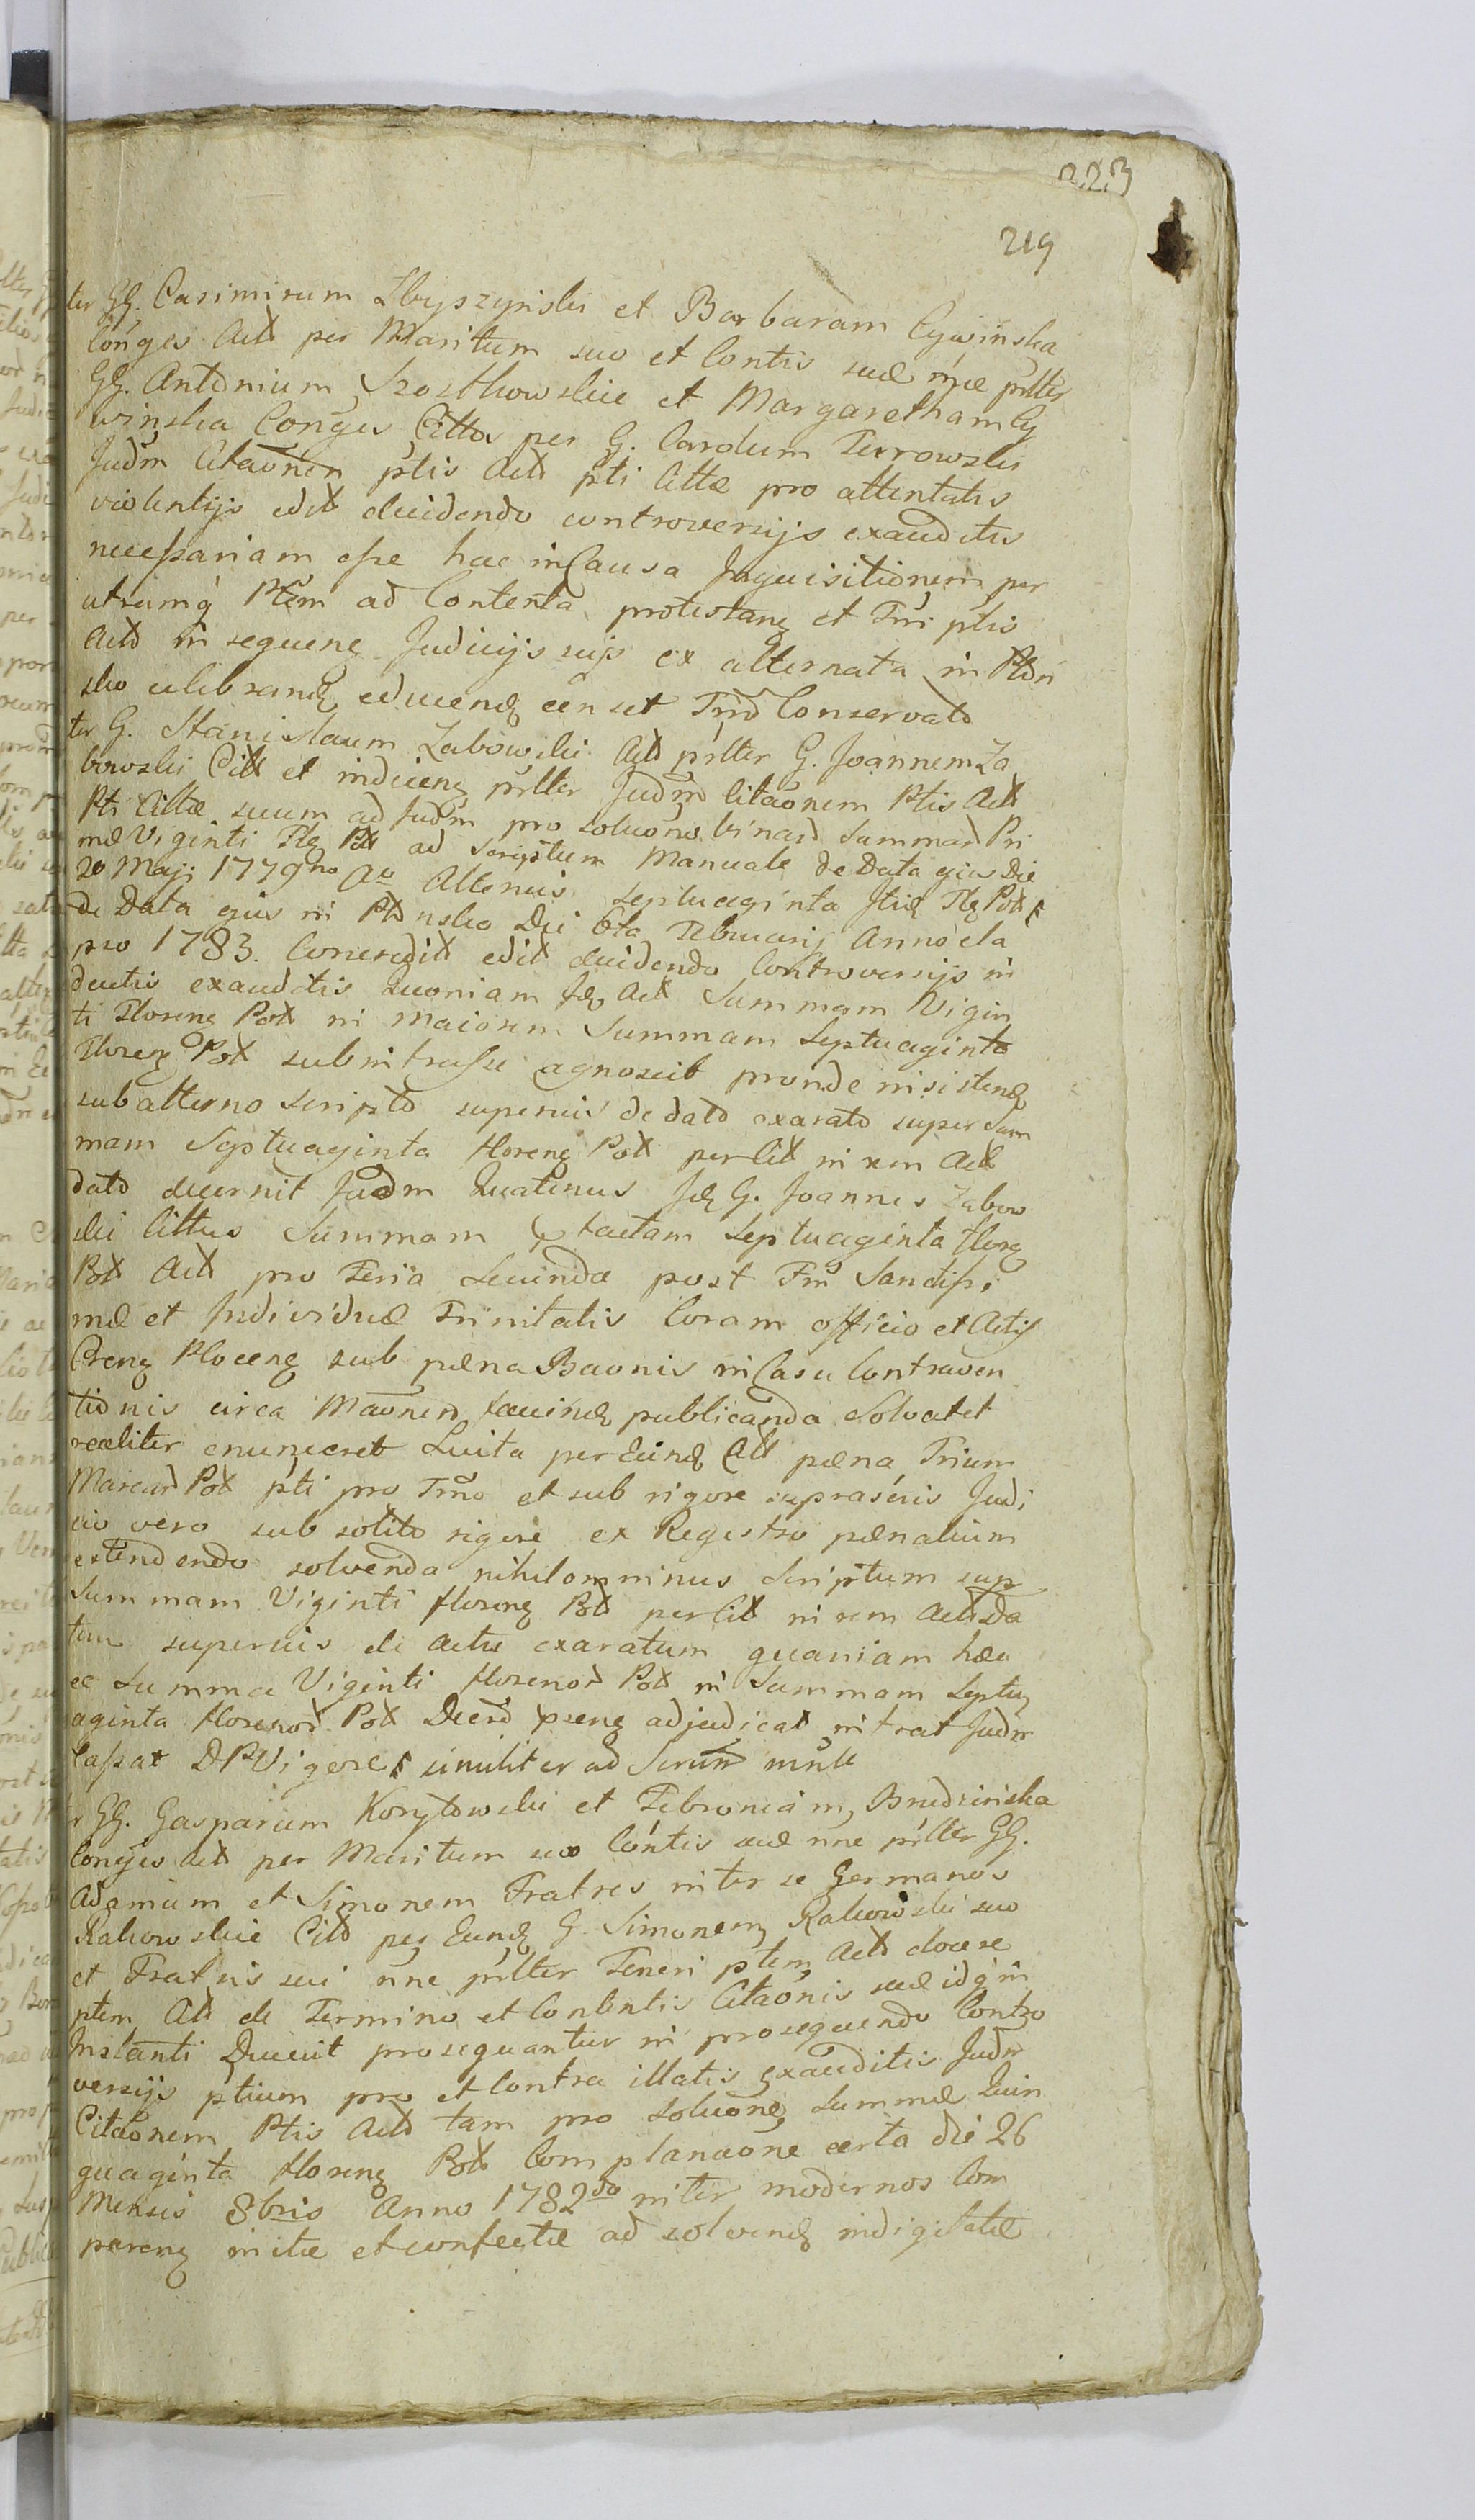 223
219
ter GG. Casimirum Zbyszynski et Barbaram Cywinska
Conges Act per Maritum suo et Contis suæ nne pnlter
GG. Antonium Szostkowskie et Margaretham Cy
winska Conges Cittos per G. Carolum
Judm Citaonem ptis Act pti Cittæ pro attentatis
violentijs edit decidendo controversijs exauditis
necessariam esse hac in Causa Inquisitionem per
utramq Ptem ad Contenta protestaõ et Tni ptis
Act in sequenõ Judicijs suis ex alternata in Plon
sko celebrand educend censet Tmo Conservato
ter G. Stanislaum Zabowski Act pnlter G. Joannem Za
bowski Citt et inducenõ pnlter Judm Citaonem Ptis Act
Pti Cittæ suum ad Judm pro soluone binar Summar Pri
mæ Viginti Flõ Pol ad Scriptum Manuale de Data ejus Die
20 Maji 1779no Ao Alterius Septuaginta Flõ Pol
de Data ejus in Plonsko Die 6ta Februarij Anno ela
pso 1783. edit decidendo Controversijs in
ductis exauditis Quoniam Act Summam Vigin
ti Florenõ Pol in maiorem Summam Septuaginta
Florenõ Pol subintrasse agnoscit proinde insistend
sub alterno Scripto superius de dato exarato super Sum
mam Septuaginta florenõ Pol per Cit in rem Act
dato decernit Judm Quatenus G. Joannes Zabow
ski Cittus Summam tactam Septuaginta floreõ
Pol Act pro Feria Secunda post Fm Sanctissi
mæ et Individuæ Trinitatis Coram officio et Actis
Crenõ Plocenõ sub pæna Baonis in Casu Contraven
tionis circa Maonem publicanda Solvat et
realiter enumeret Luita per Eund Citt pæna Trium
Marcar Pol pti pro Tmo et sub rigore suprascris Judi
cio vero sub solito rigore ex Registro pænalium
extendendo solvenda nihilominus Scriptum sup
Summam Viginti florenõ Pol per Cit in rem Act Da
tum superius de actu exaratum quoniam hæc
ce Summa Viginti florenor Pol in Summam Septu
aginta florenor Pol Decro psenõ adjudicat intrat Judm
Cassat DPVigore similiter ad Scrum mnle
r GG. Gasparum Korytowski et Febroniam Brudzinska
Conges Act per Maritum suo Contis suæ nne pnlter GG.
Adamum et Simonem Fratres inter se Germanos
Rakowskie Cit per Eund G. Simonem Rakowski suo
et Fratris sui nne pnlter Teneri ptem Act docere
ptem Act de Termino et Contentis Citaonis suæ idq in
Instanti Ducuit prosequantur in prosequendo Contro
versijs ptium pro et Contra illatis exauditis Judm
Citaonem Ptis Act tam pro Soluone Summæ Quin
quaginta florenõ Pol Complanaone certa die 26
Mensis 8bris Anno 1782do inter modernos Com
parenõ initæ et confectæ ad solvend indigitatæ